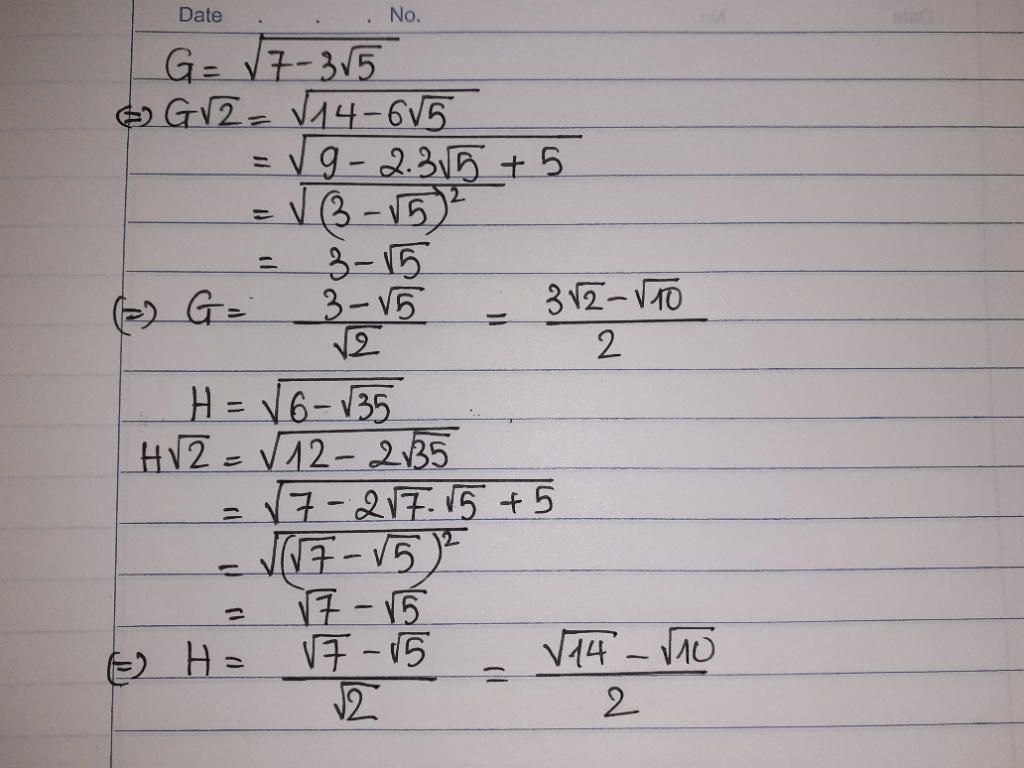 Date . . . No.
G = √(7 - 3√5)
⇔ G√2 = √(14 - 6√5)
= √(9 - 2.3√5 + 5)
= √((3 - √5)²)
= 3 - √5
⇔ G = (3 - √5)/√2 = (3√2 - √10)/2
H = √(6 - √35)
H√2 = √(12 - 2√35)
= √(7 - 2√7.√5 + 5)
= √((√7 - √5)²)
= √7 - √5
⇔ H = (√7 - √5)/√2 = (√14 - √10)/2